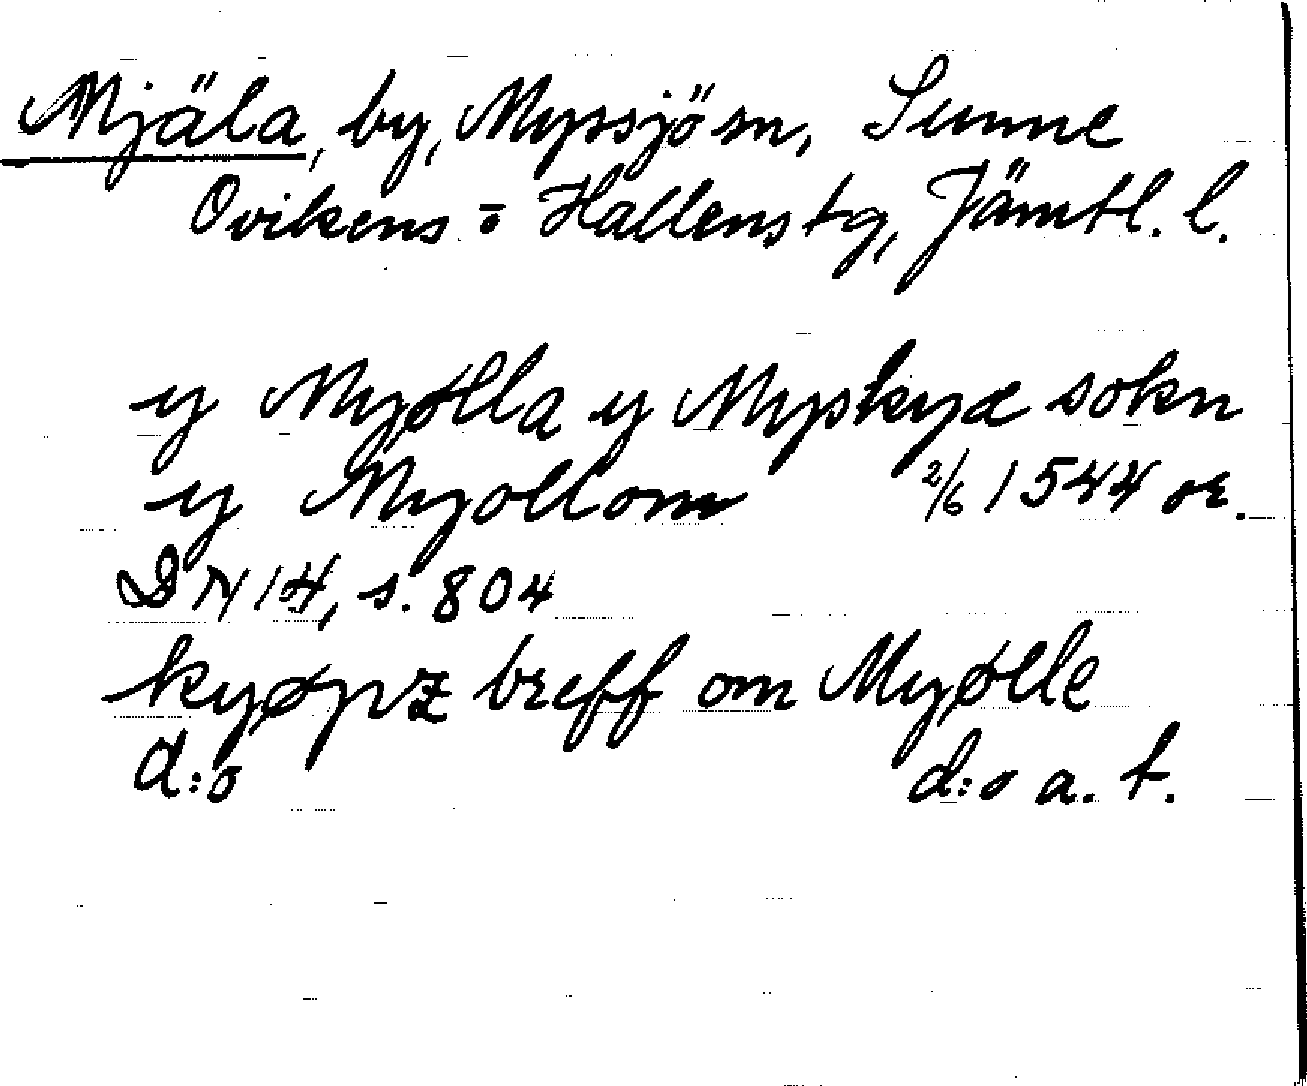 Mjäla, by, Myssjö sn, Sunne
Ovikens o Hallens tg, Jämtl. l.
y Myølla y Myskyæ sokn
y Myollom 2/6 1544 or.
DN 14, s. 804
kyøpz breff om Myølle
d:o d:o a. t.